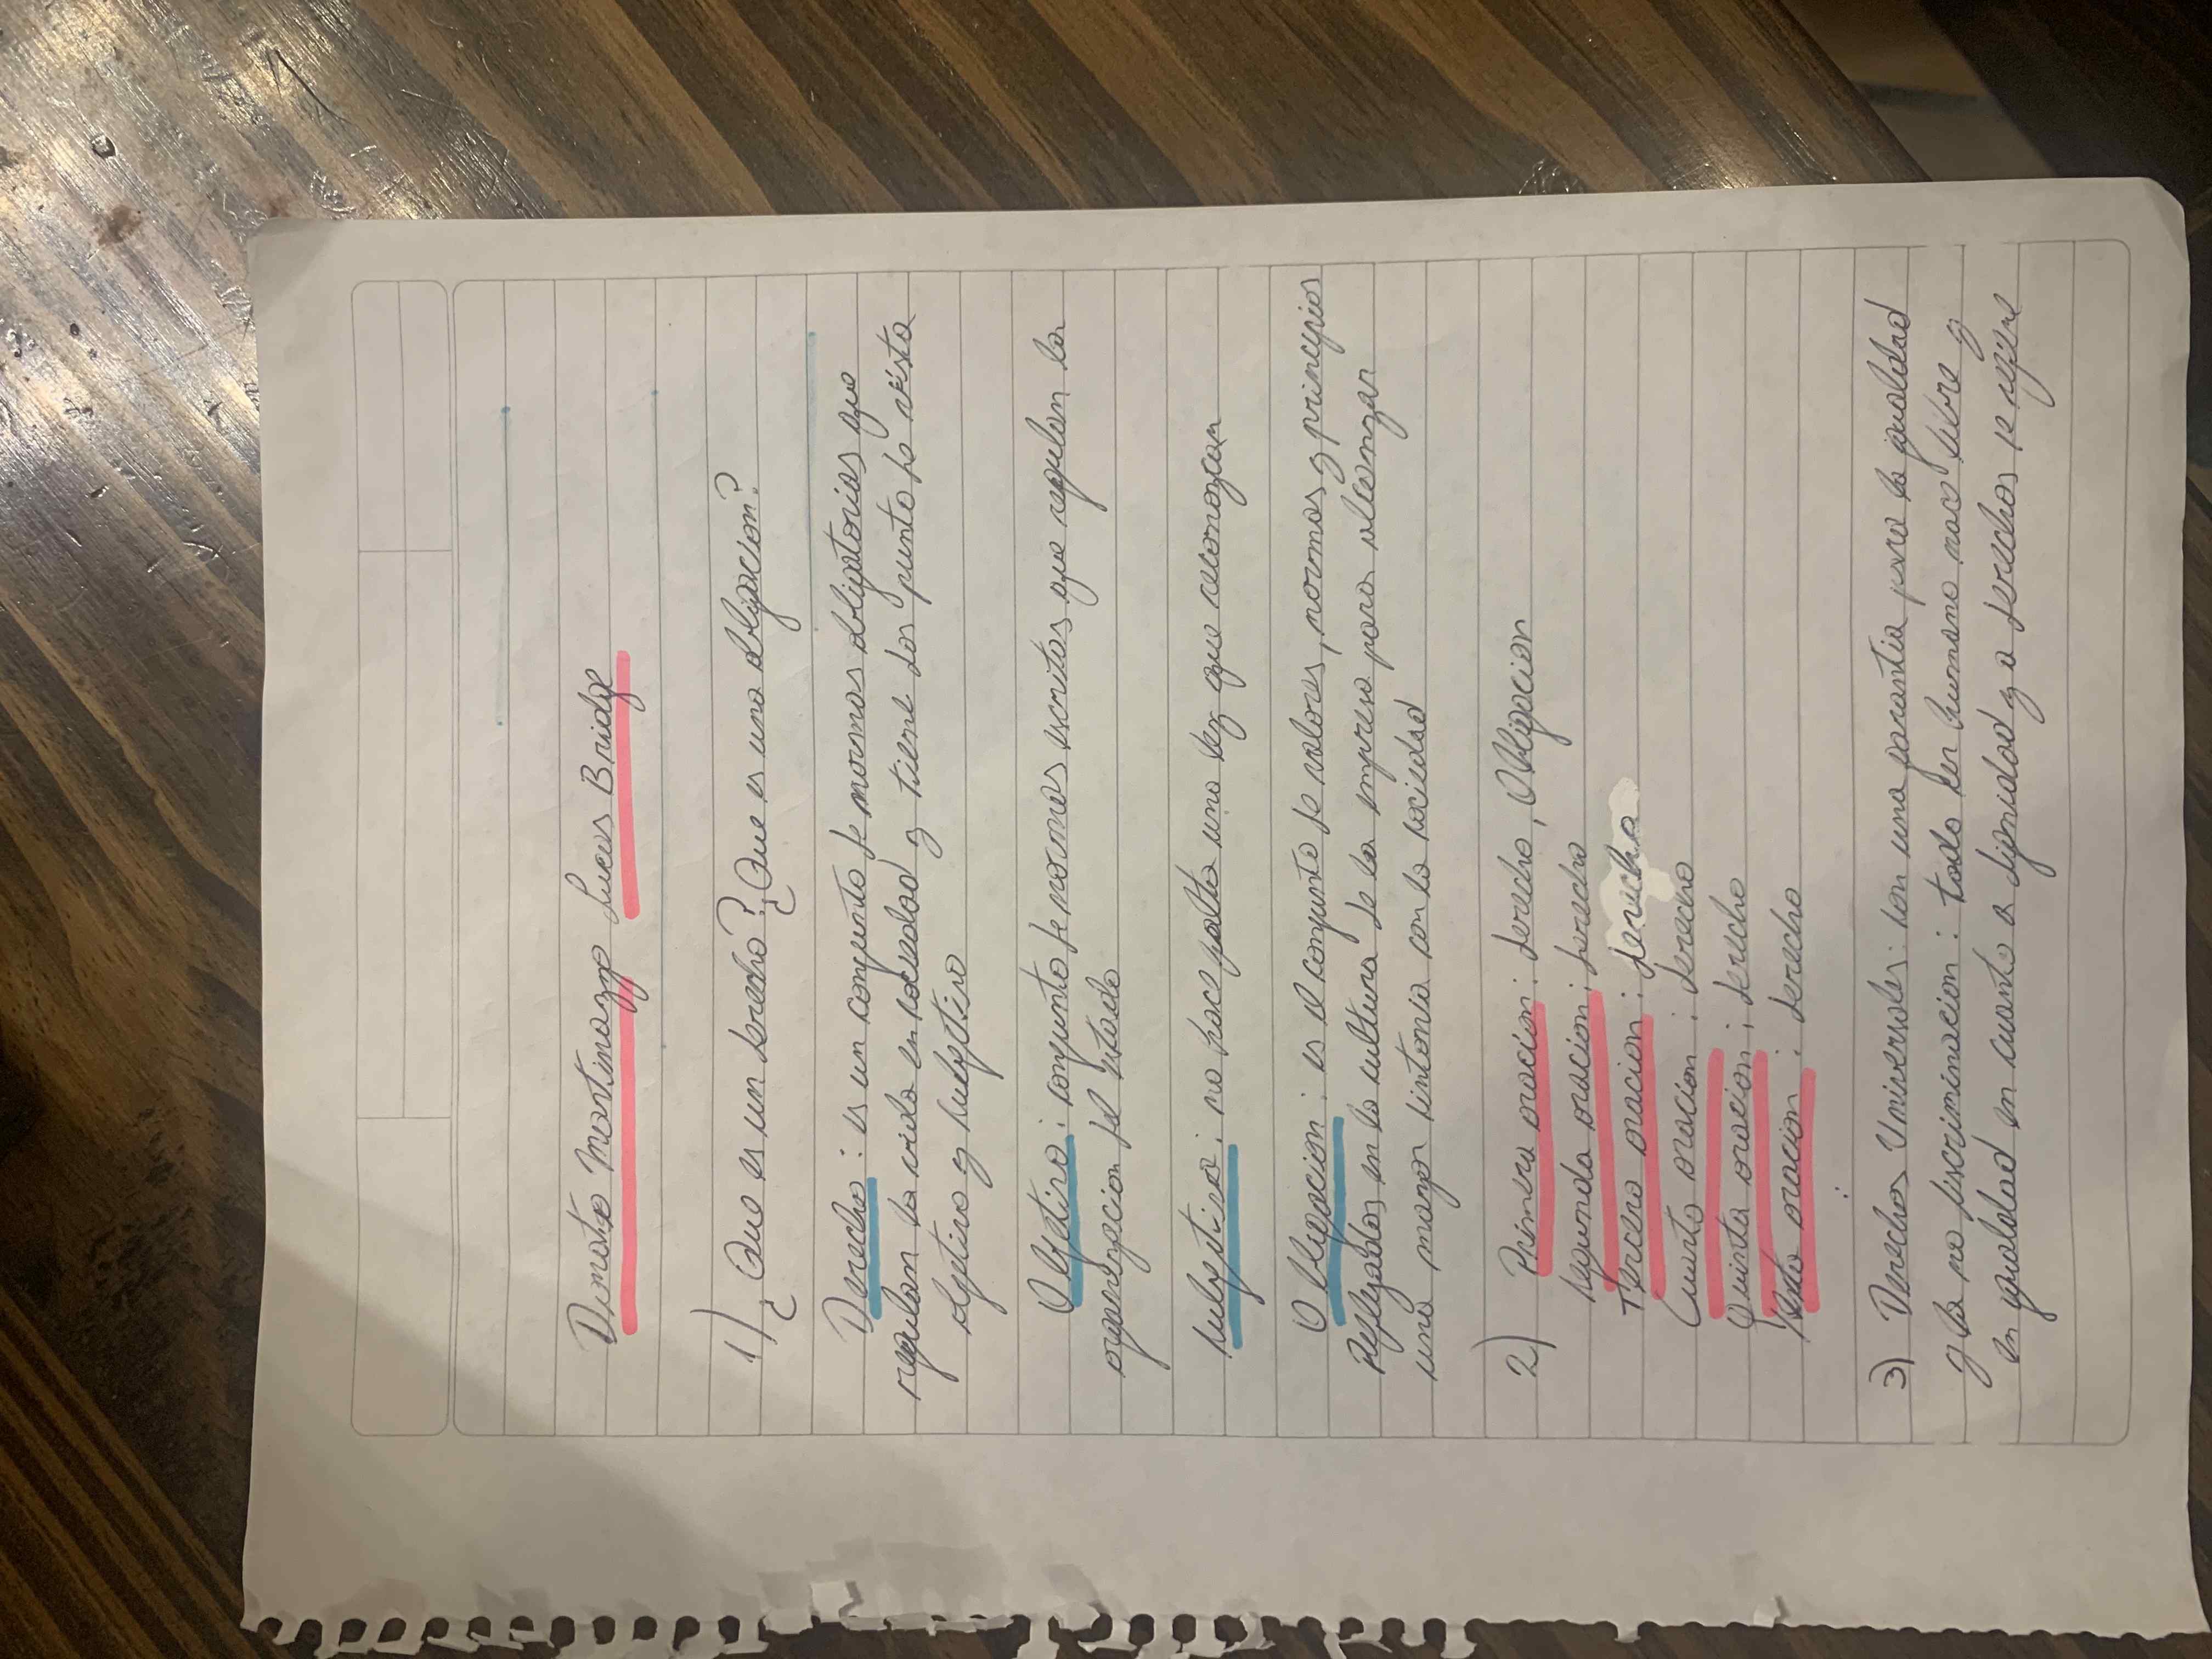 Donato Martinazzo Lucas Bridge
1) ¿Que es un derecho? ¿Que es una obligacion?
Derecho: es un conjunto de normas obligatorias que
regulan la vida en sociedad y tiene dos punto de vista
objetivo y subjetivo
Objetivo: conjunto de normas escritas que regulan la
organizacion del estado
subjetivo: no hace falta una ley que reconozcan
Obligacion: es el conjunto de valores, normas y principios
Reflejados en la cultura de la empresa para alcanzar
una mayor sintonia con la sociedad
2) Primera oracion: derecho, Obligacion
segunda oracion: derecho
Tercera oracion: derecho
Cuarta oracion: derecho
Quinta oracion: derecho
Sexta oracion: derecho
3) Derechos Universales: son una garantia para la igualdad
y la no discriminacion: todo ser humano nace libre y
en igualdad en cuanto a dignidad y a derechos se refiere